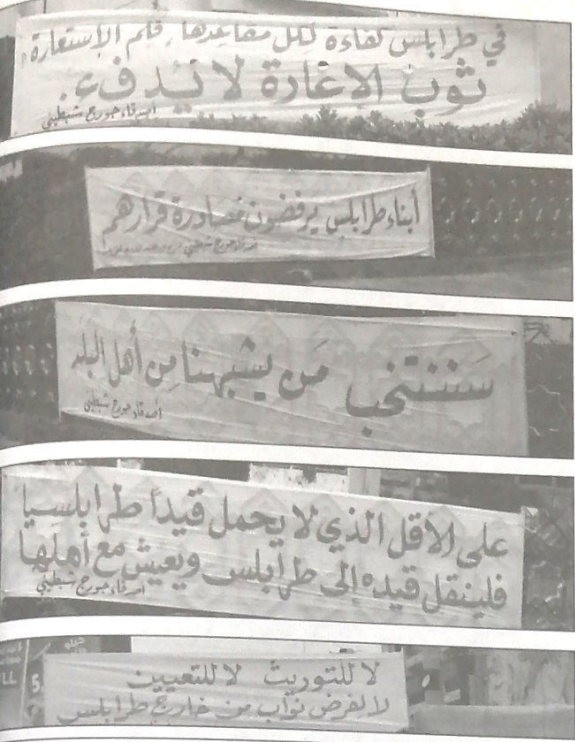 في طرابلس كفاءة لكل مقاعدها، فلم الإستعارة؟
ثوب الاعارة لا يدفء.
اصدقاء جورج شبطيني
أبناء طرابلس يرفضون مصادرة قرارهم
اصدقاء جورج شبطيني
سننتخب من يشبهنا من أهل البلد
أصدقاء جورج شبطيني
على الأقل الذي لا يحمل قيداً طرابلسيا
فلينقل قيده إلى طرابلس ويعيش مع أهلها
اصدقاء جورج شبطيني
لا للتوريث لا للتعيين
لا لفرض نواب من خارج طرابلس
LL
5